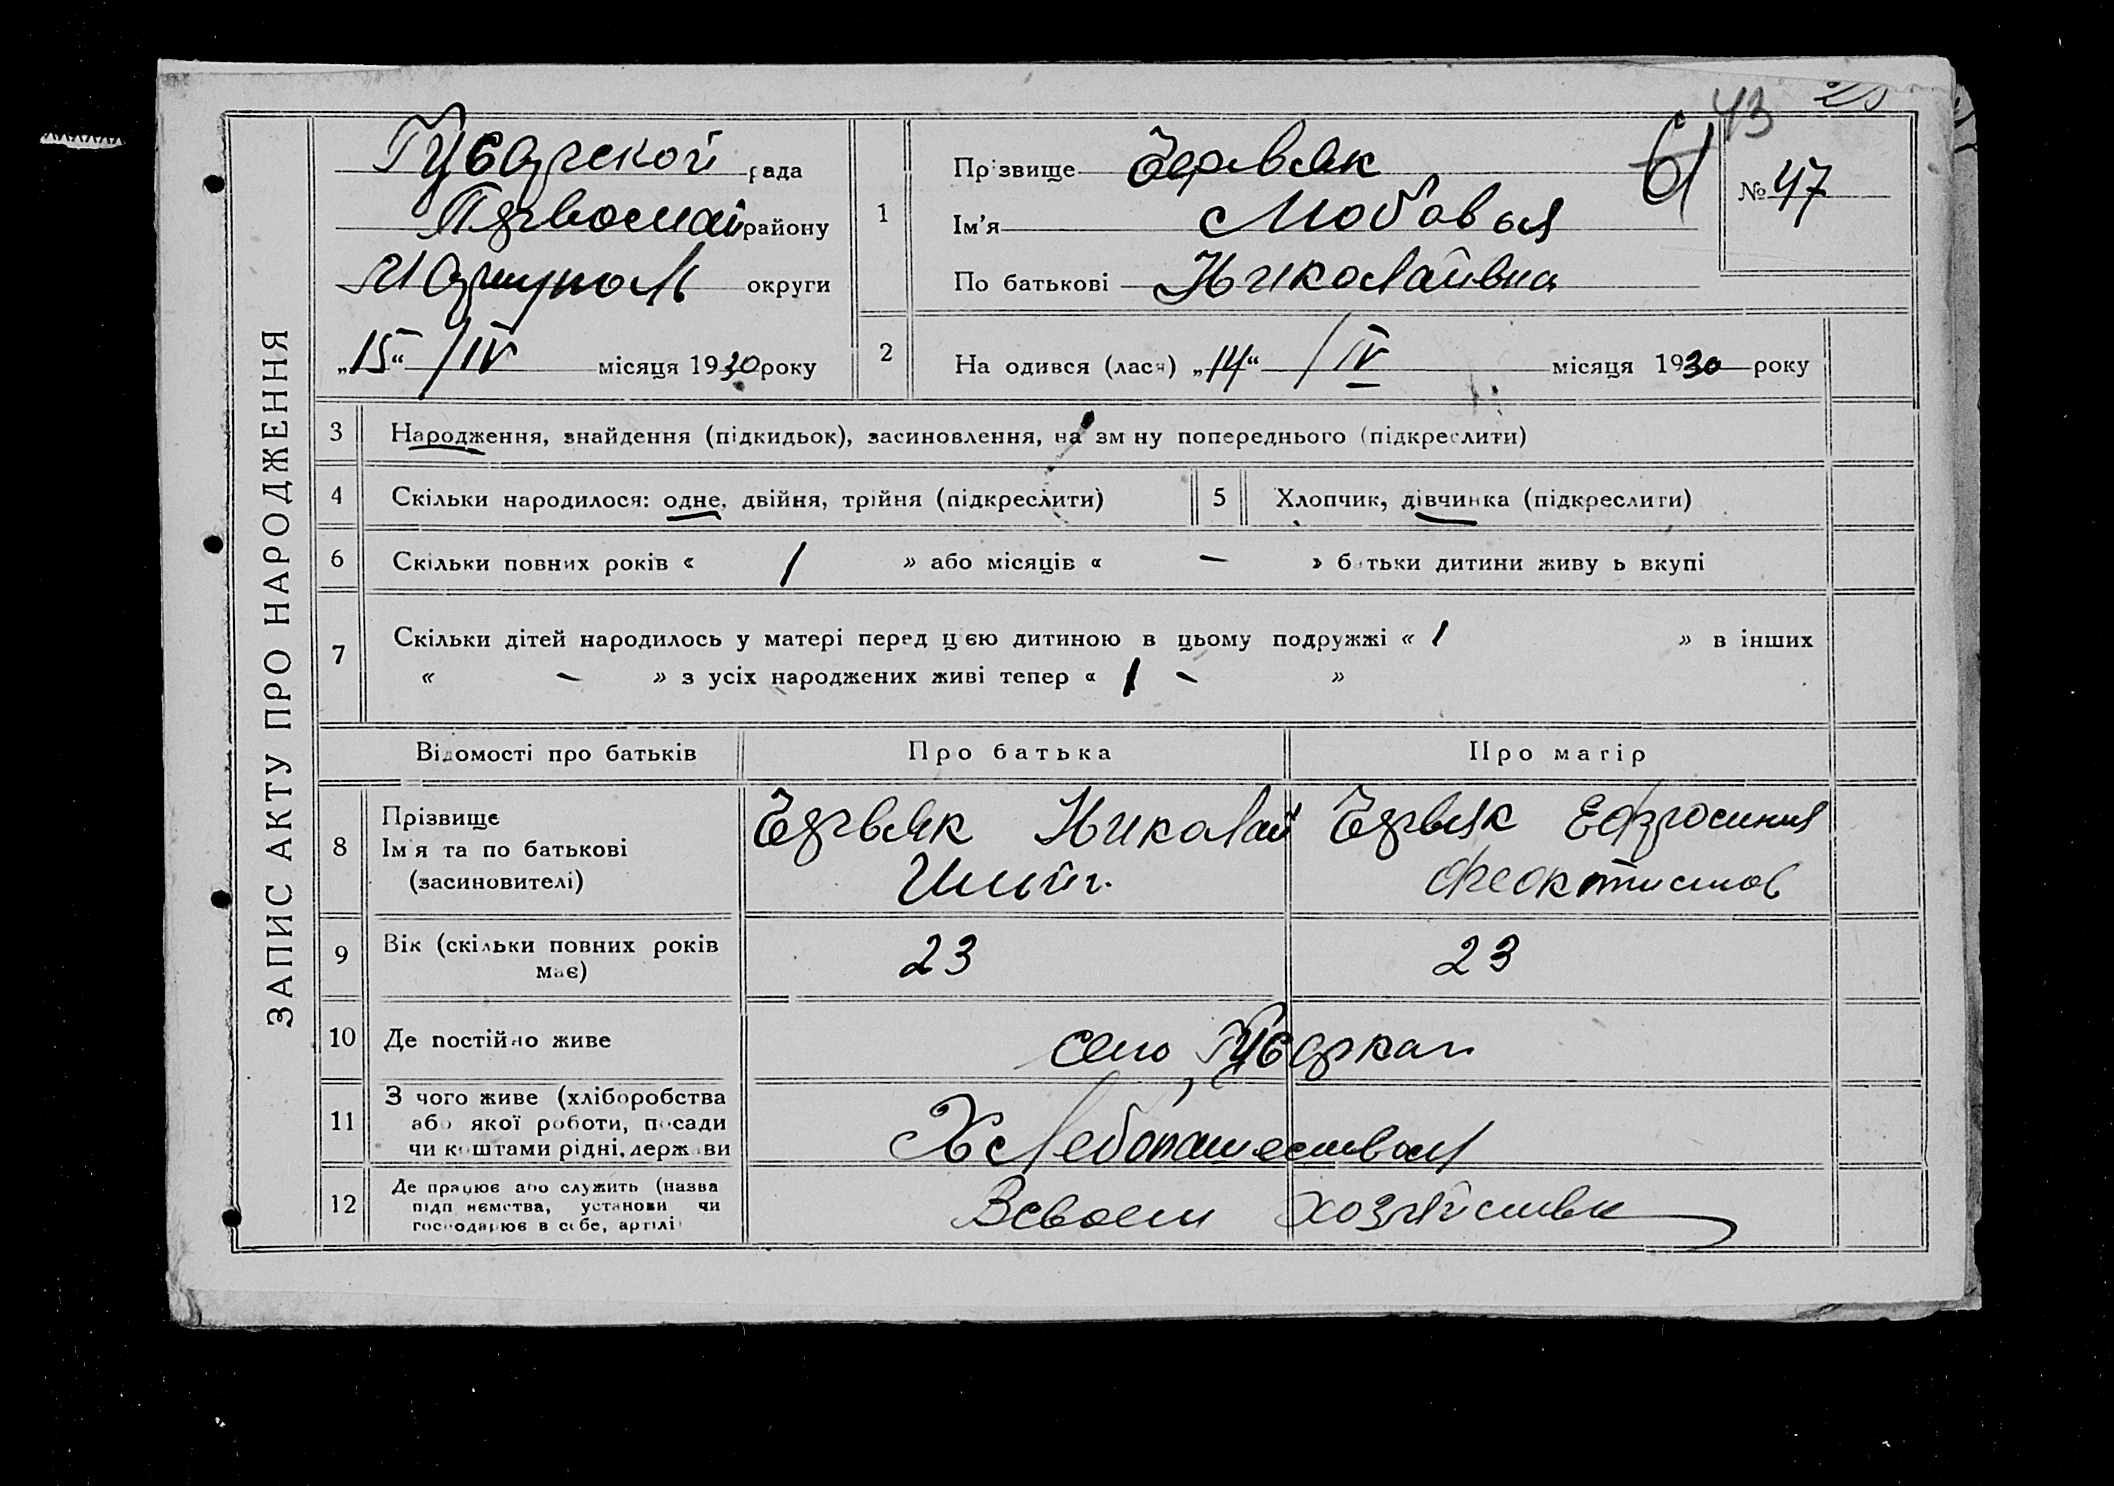 ЗАПИС АКТУ ПРО НАРОДЖЕННЯ
43
Губарской рада
Первомай району
Мариуполь округи
„15“ /IV місяця 1930 року
1
Прізвище Червяк
Ім'я Любовья
По батькові Николаивна
61
№ 47
2
На одився (лася) „14“ /IV місяця 1930 року
3 Народження, знайдення (підкидьок), засиновлення, на зм ну попереднього (підкреслити)
4 Скільки народилося: одне, двійня, трійня (підкреслити)
5 Хлопчик, дівчинка (підкреслити)
6 Скільки повних років « 1 » або місяців « — » б тьки дитини живу ь вкупі
7 Скільки дітей народилось у матері перед цією дитиною в цьому подружжі « 1 » в інших
« — » з усіх народжених живі тепер « 1 — »
Відомості про батьків Про батька Про матір
8 Прізвище
Ім'я та по батькові
(засиновителі)
Червяк Николай
Червяк Ефросиния
Феоктистов
9 Вік (скільки повних років
має)
23 23
10 Де постійно живе
село Губарка
11 З чого живе (хліборобства
або якої роботи, посади
чи коштами рідні, держави
Хлебопашеством
12 Де працює або служить (назва
підп иємства, установи чи
господарює в себе, артілі
Всвоем хозяйстве